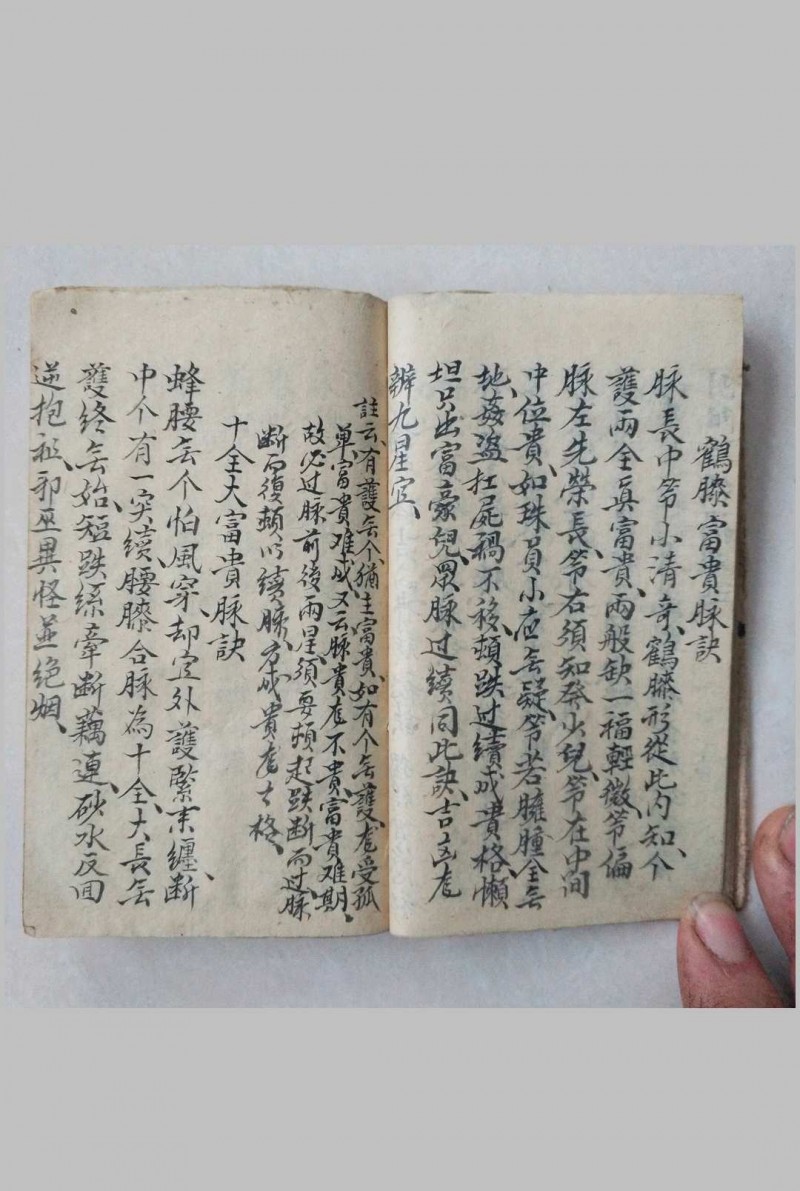 鶴膝富貴脉訣
脉長中節小清奇、鶴膝形從此內知、个
護兩全真富貴、兩般缺一福輕微、節偏
脉左先榮長、節右須知發少兒、節在中间
中位貴、如珠員小应无疑、節若臃腫全无
地、姦盜扛屍禍不移、頓跌过續成貴格、懶
坦只出富豪兒、眾脉过續同此訣、吉凶龙
辨九星宜、
註云、有護无个猶主富貴、如有个无護、龙受孤
单、富貴难成、又云脉貴龙不貴、富貴难期、
故必过脉前後兩星、须要頓起跌断而过、脉
断而復頓以續脉、方成貴龙大格、
十全大富貴脉訣
蜂腰无个怕風穿、却宜外護緊來纏、断
中个有一突續、腰膝合脉為十全、大長无
護终无始、短跌絲牽断藕連、砂水反囬
逆抱祉、邪巫異怪並绝烟、